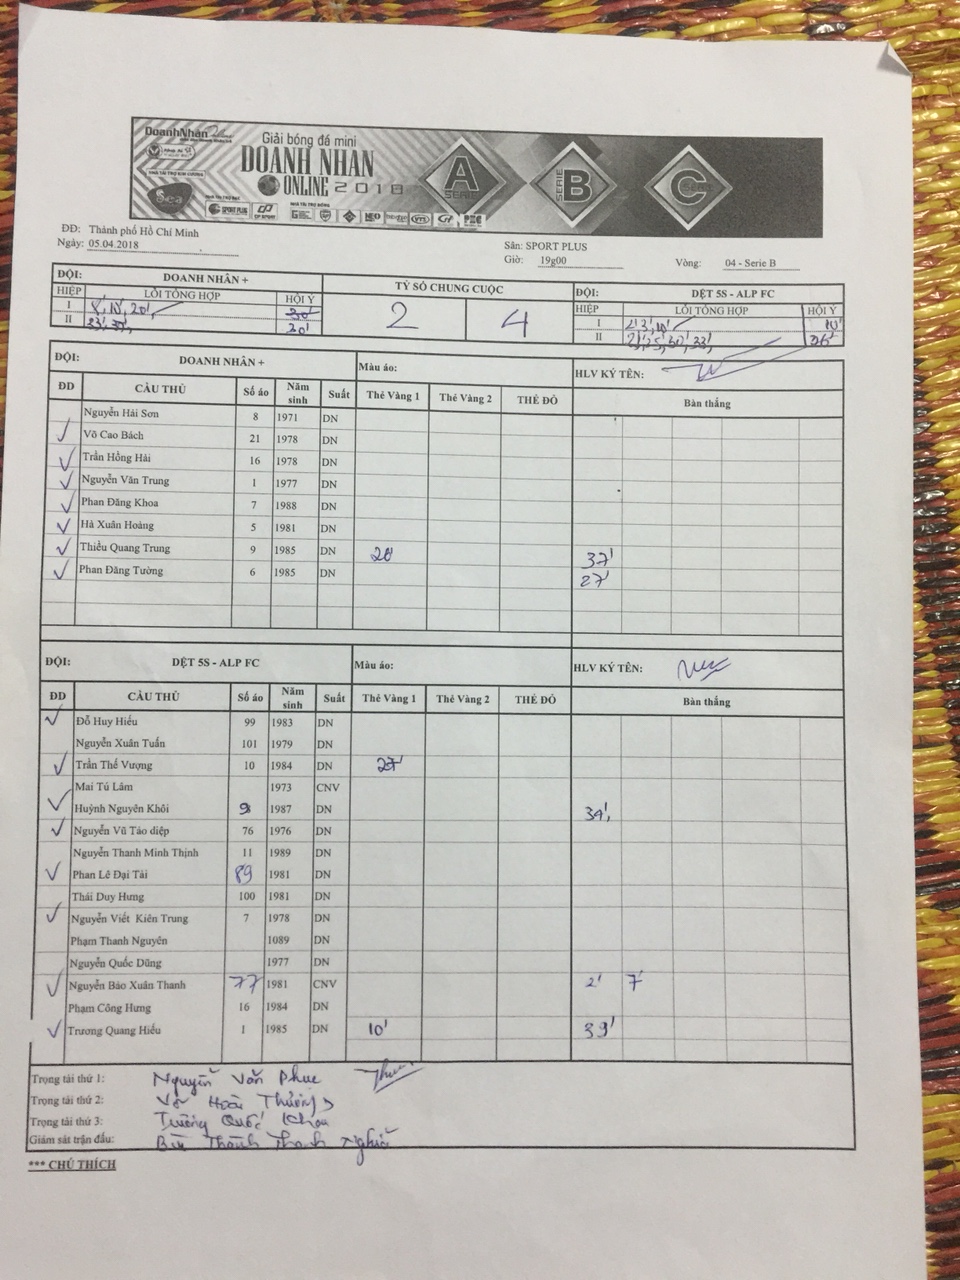 DoanhNhân
Giải bóng đá mini
DOANH NHAN
ONLINE 2018
A SERIE
SERIE B
C
Sea
SPORT PLUS
ĐĐ: Thành phố Hồ Chí Minh
Ngày: 05.04.2018
Sân: SPORT PLUS
Giờ: 19g00
Vòng: 04 - Serie B
ĐỘI: DOANH NHÂN + TỶ SỐ CHUNG CUỘC ĐỘI: DỆT 5S - ALP FC
HIỆP LỖI TỔNG HỢP HỘI Ý 2 4 HIỆP LỖI TỔNG HỢP HỘI Ý
I 8', 18', 20' I 2' 3', 10' 10'
II 33', 30' II 30', 33',
ĐỘI: DOANH NHÂN + Màu áo: HLV KÝ TÊN:
ĐD CẦU THỦ Số áo Năm sinh Suất Thẻ Vàng 1 Thẻ Vàng 2 THẺ ĐỎ Bàn thắng
Nguyễn Hải Sơn 8 1971 DN
Võ Cao Bách 21 1978 DN
Trần Hồng Hải 16 1978 DN
Nguyễn Văn Trung 1 1977 DN
Phan Đăng Khoa 7 1988 DN
Hà Xuân Hoàng 5 1981 DN
Thiều Quang Trung 9 1985 DN 20' 37'
Phan Đăng Tường 6 1985 DN 27'
ĐỘI: DỆT 5S - ALP FC Màu áo: HLV KÝ TÊN:
ĐD CẦU THỦ Số áo Năm sinh Suất Thẻ Vàng 1 Thẻ Vàng 2 THẺ ĐỎ Bàn thắng
Đỗ Huy Hiếu 99 1983 DN
Nguyễn Xuân Tuấn 101 1979 DN
Trần Thế Vượng 10 1984 DN 27'
Mai Tú Lâm 1973 CNV
Huỳnh Nguyên Khôi 9 1987 DN 34'
Nguyễn Vũ Táo diệp 76 1976 DN
Nguyễn Thanh Minh Thịnh 11 1989 DN
Phan Lê Đại Tài 89 1981 DN
Thái Duy Hưng 100 1981 DN
Nguyễn Viết Kiên Trung 7 1978 DN
Phạm Thanh Nguyên 1089 DN
Nguyễn Quốc Dũng 1977 DN
Nguyễn Bảo Xuân Thanh 77 1981 CNV 2' 7'
Phạm Công Hưng 16 1984 DN
Trương Quang Hiếu 1 1985 DN 10' 39'
Trọng tài thứ 1: Nguyễn Văn Phục
Trọng tài thứ 2: Võ Hoài Thương
Trọng tài thứ 3: Trương Quốc Khoa
Giám sát trận đấu: Bùi Thành Thanh Nghiêm
*** CHÚ THÍCH